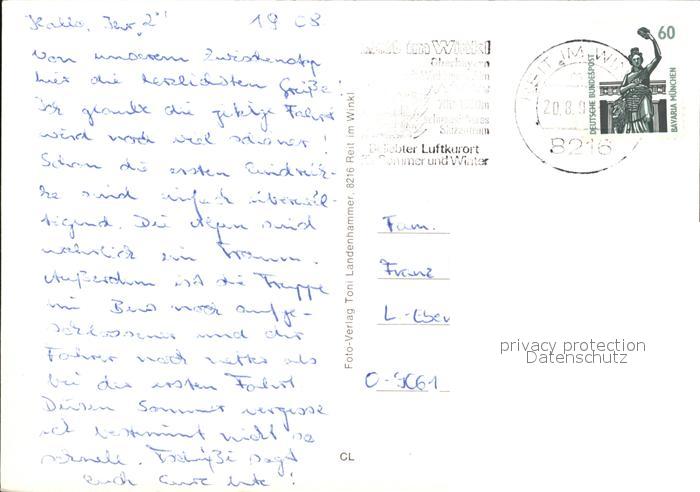 19 08
von unserem Zwischenstop
hier die herzlichsten Grüße!
Ich glaube die jetzige Fahrt
wird noch viel schöner!
Schon die ersten Eindrük-
ke sind einfach überwäl-
tigend. Die Alpen sind
wahrlich ein Traum.
Außerdem ist die Truppe
im Bus noch aufge-
schlossener und der
Fahrer noch netter als
bei der ersten Fahrt
Diesen Sommer vergesse
ich bestimmt nicht so
schnell. Tschüßi sagt
Euch Eure
im Winkl
Beliebter Luftkurort
Sommer und Winter
REIT IM WIN
20.8.9
8216
60
DEUTSCHE BUNDESPOST
BAVARIA MÜNCHEN
Foto-Verlag Toni Landenhammer, 8216 Reit im Winkl
Fam.
Franz
O-9061
privacy protection
Datenschutz
CL